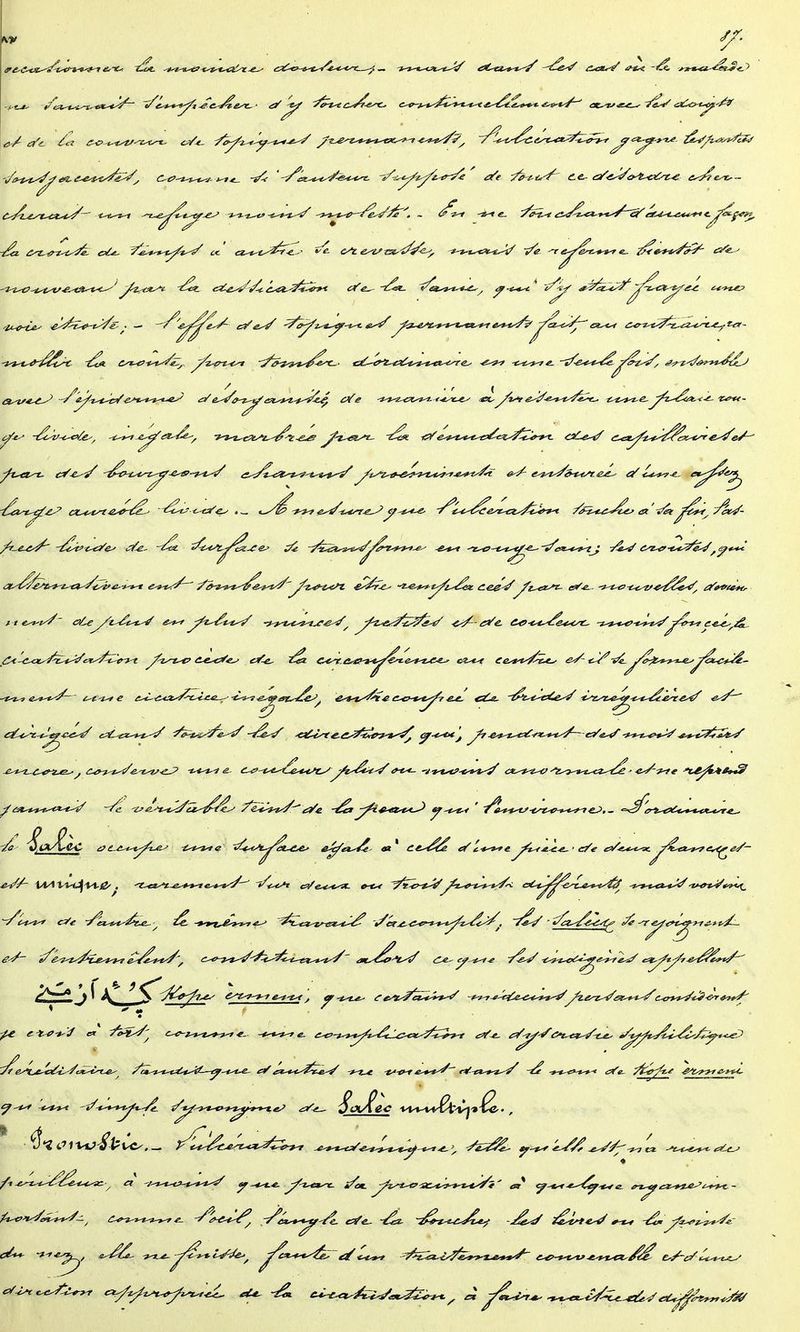 87.
occasionner la moindre douleur; — mais dans les cas où le malade
ne saurait s'empêcher d'y toucher continuellement avec les doigts
et de la couvrir de topiques permanents, l'ulcération gagne les parties
sousjacentes, comme si l'auteur supposé de tout ce désordre cher-
cherait un refuge moins molesté. — On ne touchant d'aucune façon,
la croûte de temps à autre se crevasse, mais se referme bientôt de
nouveau par la dessiccation de la sanie, qui s'y était frayée une
voie étroite; — l'effet des topiques permanents fait au contraire ra-
mollir la croûte, pour tomber d'ordinaire en une seule fois, ensemble
avec l'épiderme désorganisée, de manière à présenter une plaie rou-
ge livide, inégale, marbrée par la dénudation des capillaires et
par des bourgeons charnus proéminents et entourée d'une
large auréole livide. — A mesure que l'ulcération touche à sa fin, l'as-
pect livide de la surface se transforme en rouge-sain; les croûtes, qui
alternativement tombent pour être remplacées par de nouvelles, devien-
nent de plus en plus minces, petites et de couleur moins foncée, la
cicatrisation procède de la circonférence au centre et il se forme facile-
ment une cicatrice, inégale, entrecoupée de brides irrégulières et
dirigées dans toutes les directions, qui, pendant des mois entiers
encore, conserve une couleur plus ou moins anormale et ne reprend
jamais le véritable teint de la peau qui l'environne. — D'ordinaire
le Salec occupe une surface égale à celle d'une pièce de deux francs et
est unique; rarement sur deux ou trois points différents, mais voisins
l'un de l'autre, le même travail s'accomplit; les Salecs se rejoignent
et s'entremêlent, constituant alors ce que les indigènes appellent
Kopu ermeni, que certains médecins persans considèrent
je crois à tort, comme une complication de dyscrasie syphilitique
héréditaire, tandis que d'autres ne voient dans le nom de Kopu ermeni
qu'un simple synonyme de Salec multiple.
Pronostic. — L'ulcération endémique, telle qu'elle est, n'a rien de
périlleux, à moins que par sa proximité à quelque organe im-
portant, comme l'oeil, l'angle de la bouche, les lèvres ou la pointe
du nez, elle ne finisse, faute d'un traitement convenable et d'une
direction appropriée de la cicatrisation, à faire naître des difformités